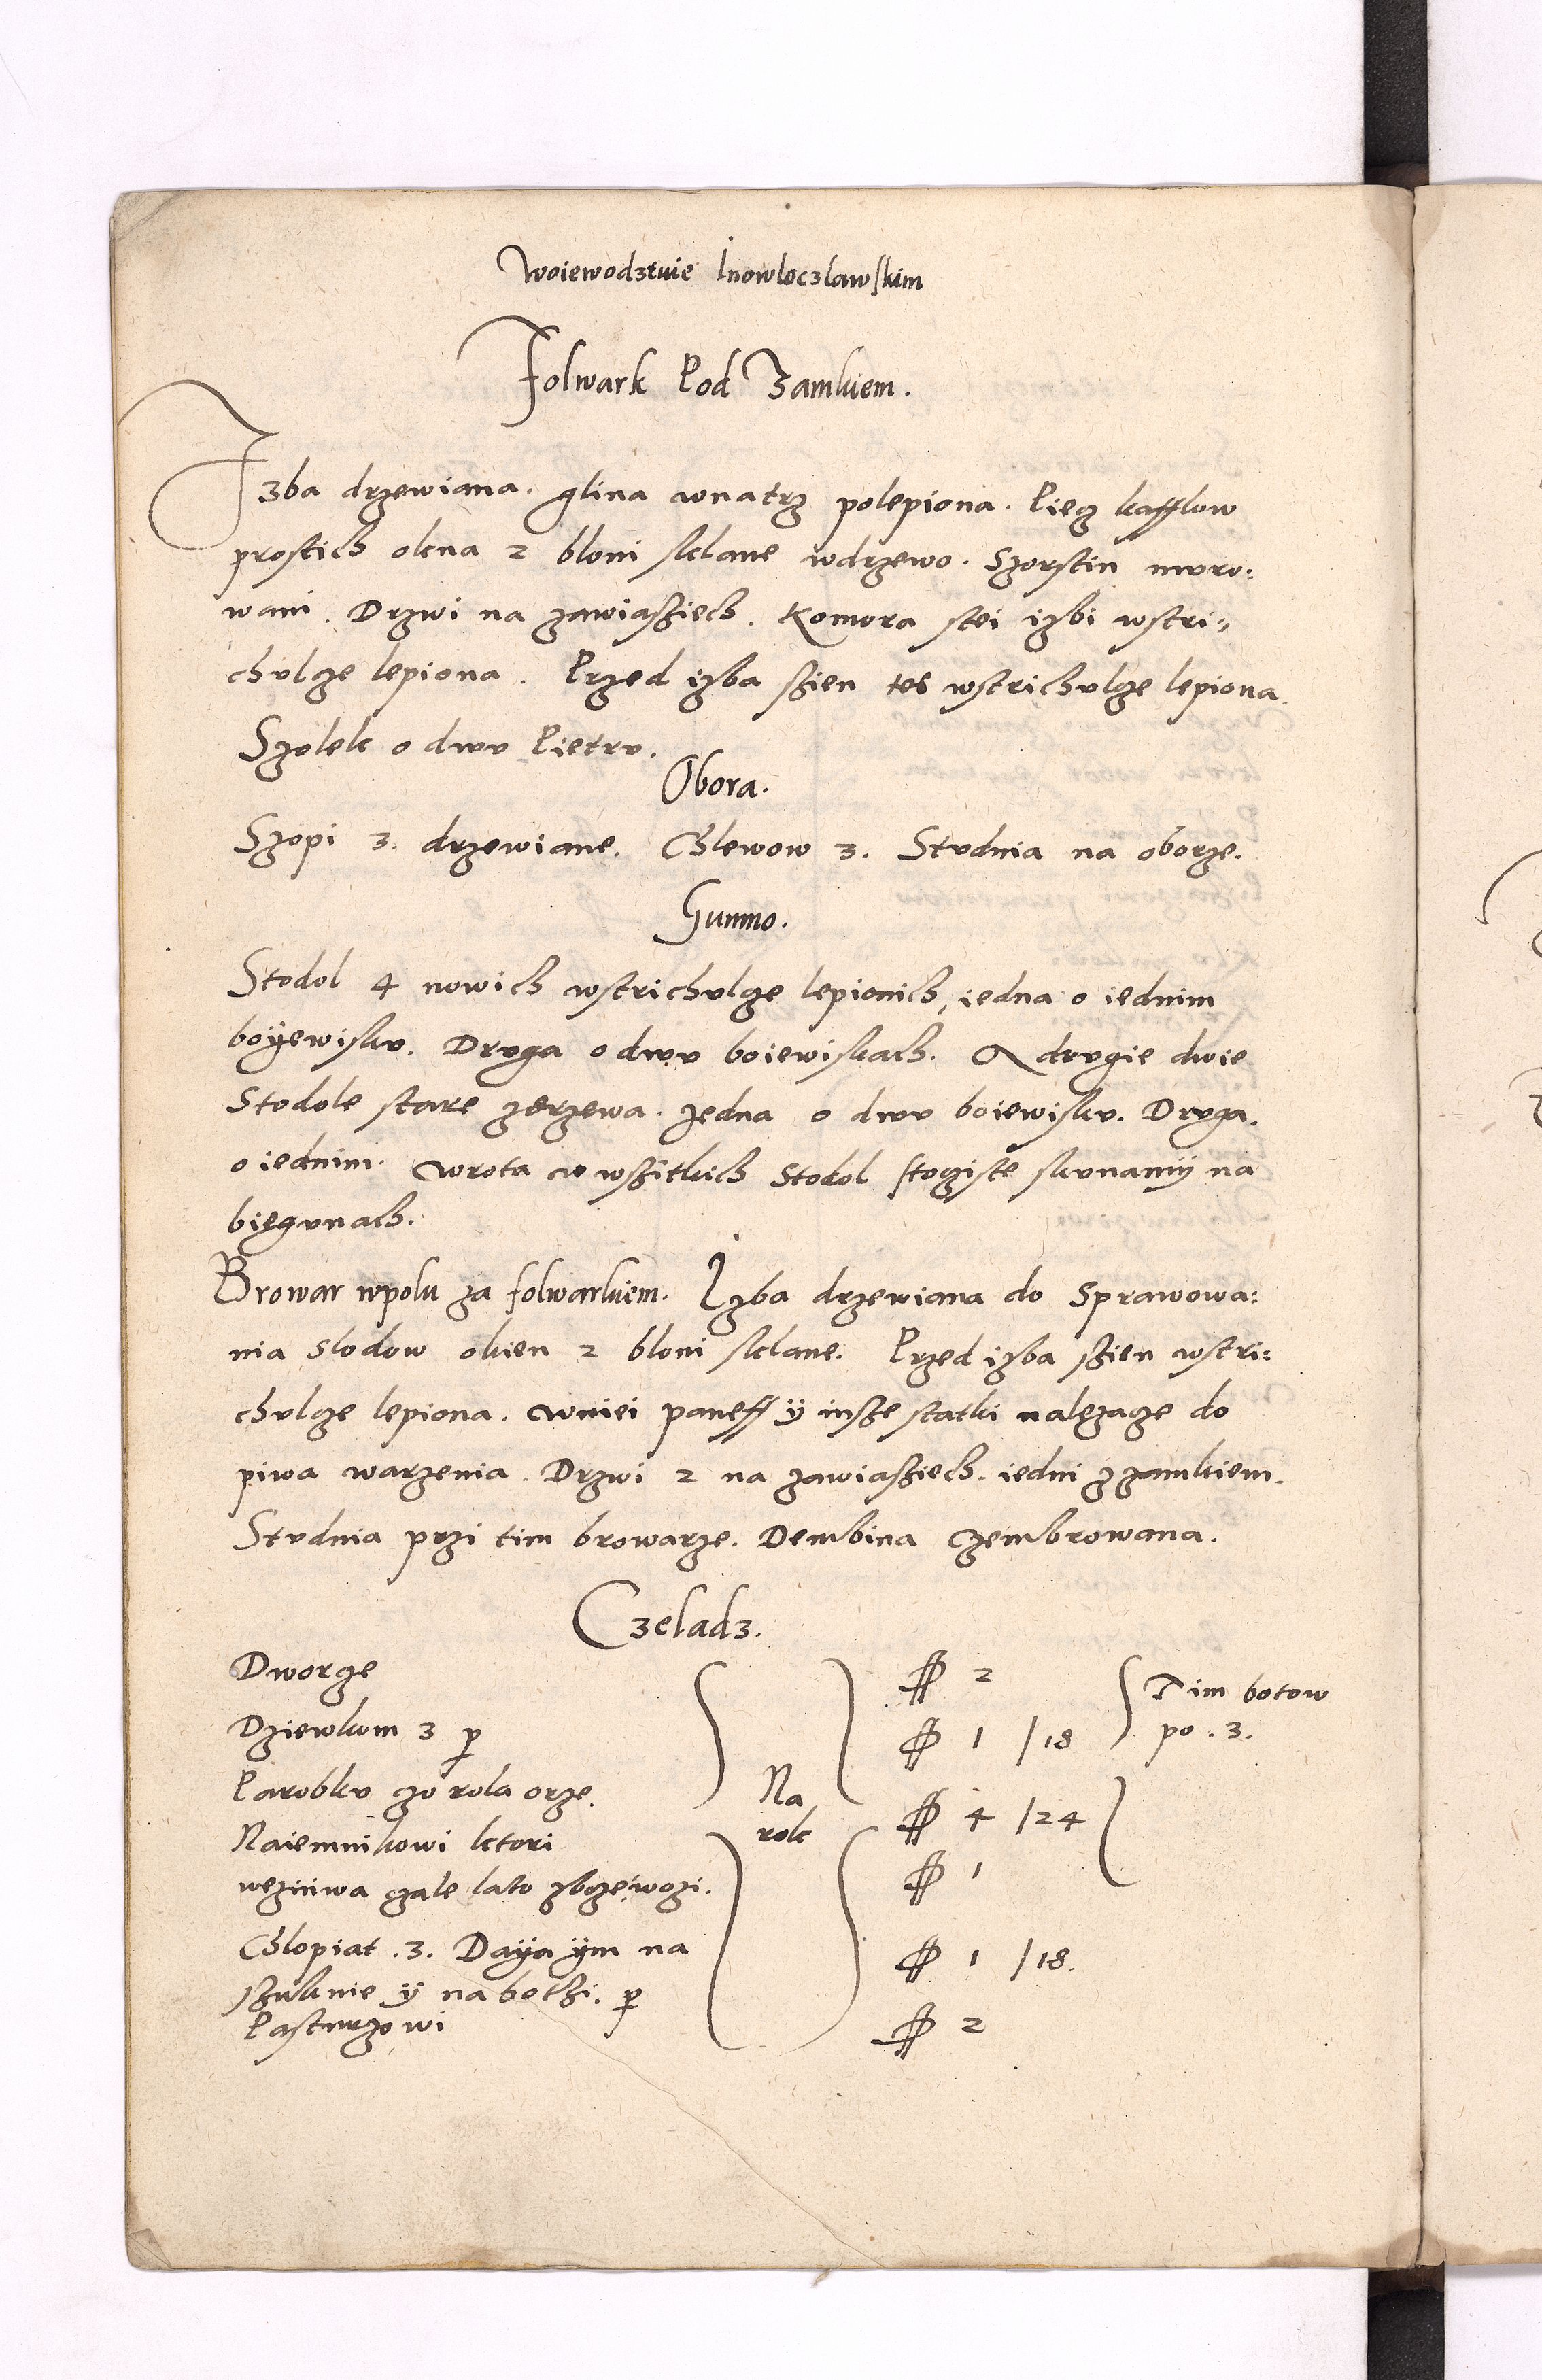 Woiewodztwie Inowloczlawskim
Folwark Pod Zamkiem.
Izba drzewiana. glina wnatrz polepiona. Piecz kafflow
prostich okna 2 bloni sklane wdrzewo. Szorstin mvro:
wani. Drzwi na zawiasziech. Komora stei izbi wstri,,
chvlcze lepiona. Przed izba szien tes wstrichvlcze lepiona.
Szolek o dwv Pietrv.
Obora.
Szopi 3. drzewiane. Chlewow 3. Stvdnia na oborze.
Gumno.
Stodol 4 nowich wstrichvlcze lepionich, iedna o iednim
boÿewiskv. Drvga o dwv boiewiskach. A drvgie dwie
Stodole stare zerzewa. Jedna o dwv boiewiskv. Drvga.
o iednim. Wrota v wszitkich Stodol stocziste skvnamÿ na
biegvnach.
Browar wpolu za folwarkiem. Izba drzewiana do Sprawowa:
nia Slodow okien 2 bloni sklane. Przed izba szien wstri:
chvlcze lepiona. Wniei paneff ÿ insze statki nalezacze do
piwa warzenia. Drzwi 2 na zawiasziech. iedni zzamkiem.
Stvdnia przi tim browarze. Dembina czembrowana.
Czeladz.
Dworcze ꝟ 2 Tim botow
Dziewkom 3 p ꝟ 1 /18 po .3.
Parobkv czo rola orze. Na ꝟ 4 /24
Naiemnikowi ktori role ꝟ 1
wezniwa czale lato zboze wozi.
Chlopiat .3. Daÿa ÿm na ꝟ 1 /18.
szuknie ÿ na bothi. p
Pasturzowi ꝟ 2